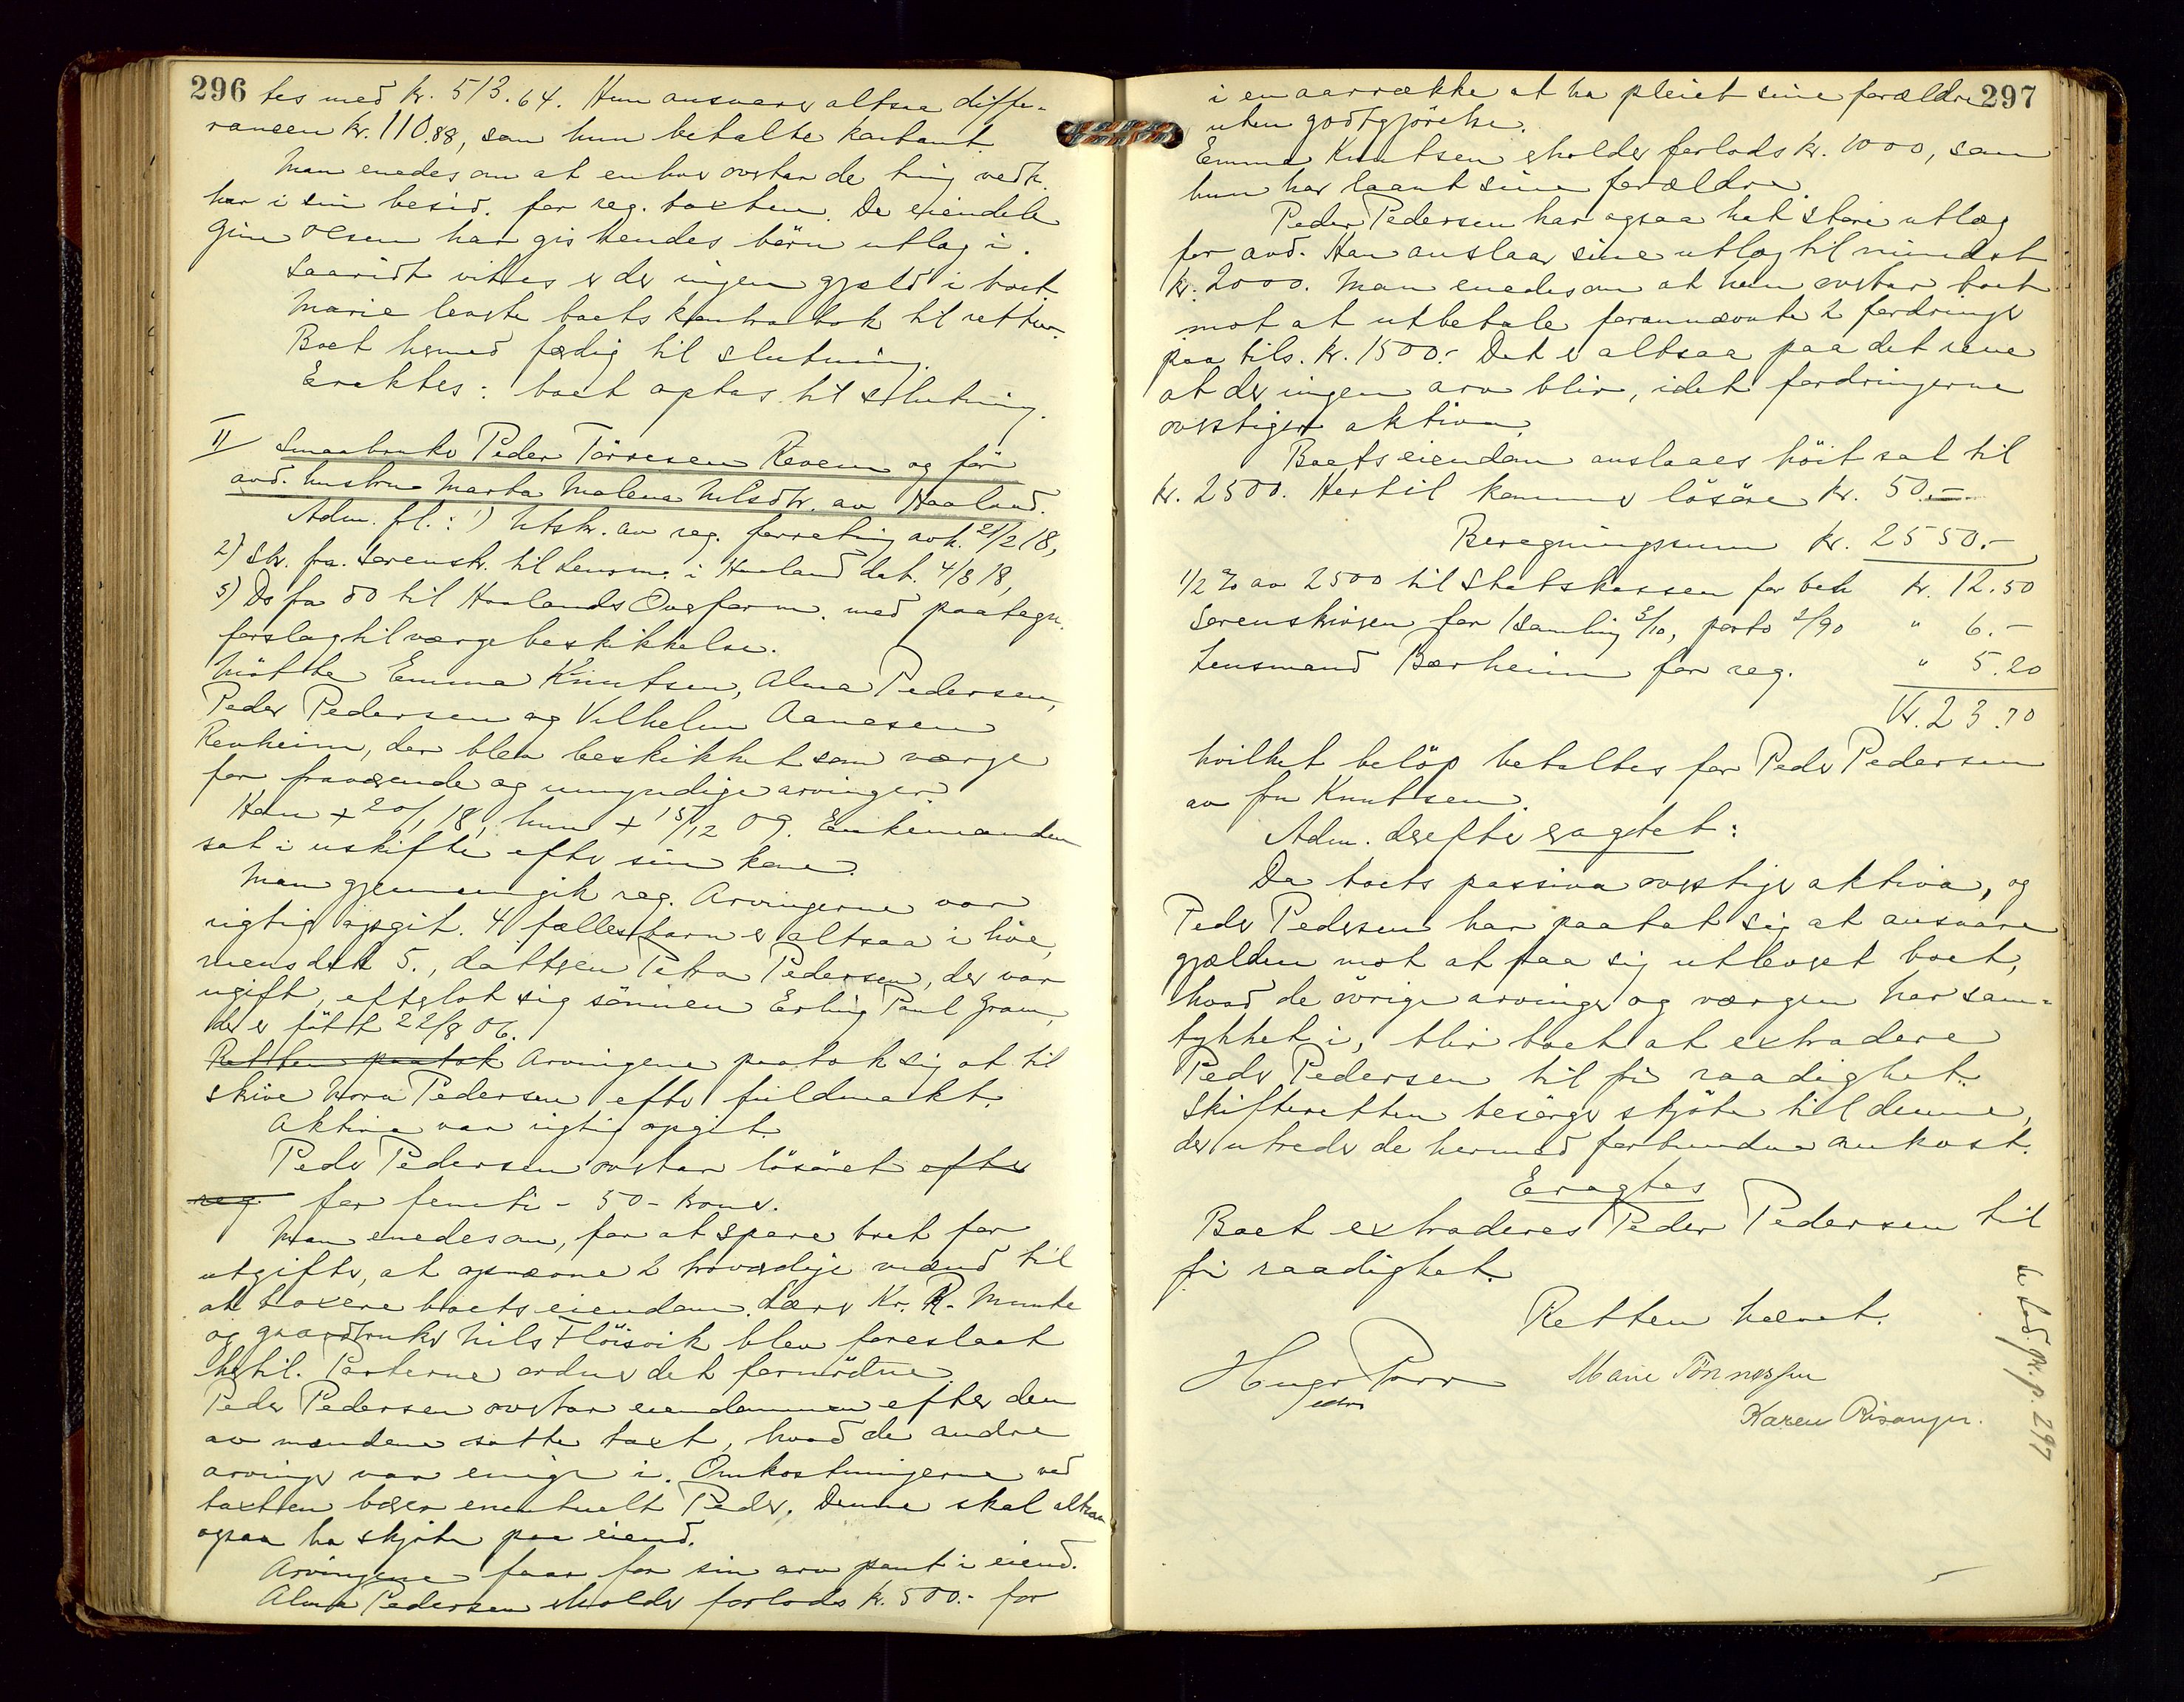 296
tes med kr. 513.64. Hun ansvarer altsaa diffe-
ransen kr. 110.88, som hun betalte kontant.
Man enedes om at enhver overtar de ting vedk.
har i sin besid. for reg. taxten. De eiendele
Gine Olsen har gis hendes börn utlæg i.
Saavidt vites er der ingen gjæld i boet.
Marie leverte boets kontrabok til retten.
Boet hermed færdig til slutning.
Eraktes: boet optas til slutning.
II Smaabruker Peder Törresen Revem og för
avd. hustru Marta Malena Nilsdtr. av Haaland.
Adm. fl.: 1) Utskr. av reg. forretning avh. 21/2 18,
2) Skr. fra Sorenskr. til Lensm. i Haaland dat. 4/8 18,
3) Do fra do til Haalands Overform. med paategn.
forslag til værgebeskikkelse.
Mötte Emma Knutsen, Alma Pedersen,
Peder Pedersen og Vilhelm Aanesen
Revheim, der blev beskikket som værge
for fraværende og umyndige arvinger.
Han + 20/1 18, hun + 15/12 09. Enkemanden
sat i uskifte efter sin kone.
Man gjennemgik reg. Arvingerne var
rigtig opgit. 4 fællesbarn er altsaa i live,
mens det 5., datteren Petra Pedersen, der var
ugift, efterlot sig sönnen Erling Paul Gram,
der er född 22/8 06.
Retten paatok Arvingene paatok sig at til
skrive Nora Pedersen efter fuldmakt.
Aktiva var rigtig opgit.
Peder Pedersen overtar lösöret efter
reg. for femti - 50 - kroner.
Man enedes om, for at spare boet for
utgifter, at opnævne 2 troværdige mænd til
at taxere boets eiendom. Lærer Kr. R. Munte
og gaardbruker Nils Flöisvik blev foreslaat
hertil. Parterne ordner det fornödne.
Peder Pedersen overtar eiendommen efter den
av mændene satte taxt, hvad de andre
arvinger var enige i. Omkostningerne ved
taxten bærer eventuelt Peder. Denne skal altsaa
ogsaa ha skjöte paa eiend.
Arvingene faar for sin arv pant i eiend.
Alma Pedersen erholder forlods kr. 500.- for
297
i en aarrække at ha pleiet sine forældre
uten godtgjörelse.
Emma Knutsen erholder forlods kr. 1000, som
hun har laant sine forældre.
Peder Pedersen har ogsaa hat store utlæg
for avd. Han anslaar sine utlæg til mindst
kr. 2000. Man enedes om at han overtar boet
mot at utbetale forannævnte 2 fordringer
paa tils. kr. 1500.- Det er altsaa paa det rene
at der ingen arv blir, idet fordringerne
overstiger aktiva.
Boets eiendom anslaaes höit sat til
kr. 2500. Hertil kommer lösöre kr. 50.-
Beregningssum kr. 2550.-
1/2 % av 2500 til Statskassen for beh kr. 12.50
Sorenskriveren for 1 samling 3/10, porto 2/90 " 6.-
Lensmand Bærheim for reg. " 5.20
Kr. 23.70
hvilket belöp betaltes for Peder Pedersen
av fru Knutsen.
Adm. derefter eragtet:
Da boets passiva overstiger aktiva, og
Peder Pedersen har paatat sig at ansvare
gjælden mot at faa sig utleveret boet,
hvad de övrige arvinger og værgen har sam-
tykket i, blir boet at extradere
Peder Pedersen til fri raadighet.
Skifteretten besörger skjöte til denne,
der utreder de hermed forbundne omkost.
Eragtes
Boet extraderes Peder Pedersen til
fri raadighet.
Retten hævet.
Hugo Parr
edsv
Marie Tönnessen
Karen Risanger.
p. 297